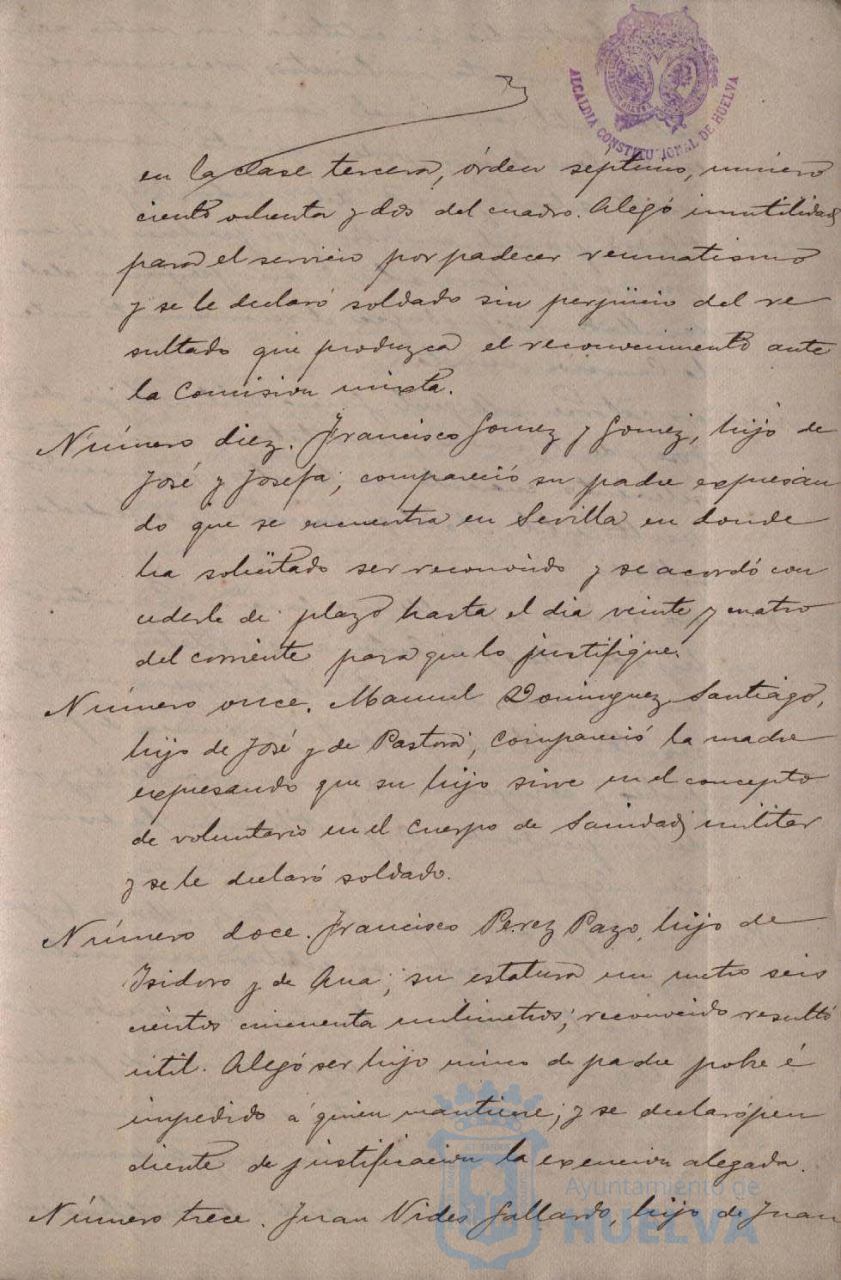 ALCALDIA CONSTITUCIONAL DE HUELVA
en la clase tercera, órden septimo, número
ciento ochenta y dos del cuadro. Alegó inutilidad
para el servicio por padecer reumatismo
y se le declaró soldado sin perjuicio del re
sultado que produzca el reconocimiento ante
la Comision mixta.
Número diez. Francisco Gomez y Gomez, hijo de
José y Josefa; compareció su padre expresan
do que se encuentra en Sevilla en donde
ha solicitado ser reconocido y se acordó con
cederle de plazo hasta el dia veinte y cuatro
del corriente para que lo justifique.
Número once. Manuel Dominguez Santiago,
hijo de José y de Pastora; compareció la madre
expresando que su hijo sirve en el concepto
de voluntario en el Cuerpo de Sanidad militar
y se le declaró soldado.
Número doce. Francisco Perez Pazo, hijo de
Isidoro y de Ana; su estatura un metro seis
cientos cincuenta milimetros; reconocido resultó
útil. Alegó ser hijo unico de padre pobre é
impedido á quien mantiene; y se declaró pen
diente de justificacion la exencion alegada.
Número trece. Juan Vides Gallardo, hijo de Juan
Ayuntamiento de
HUELVA